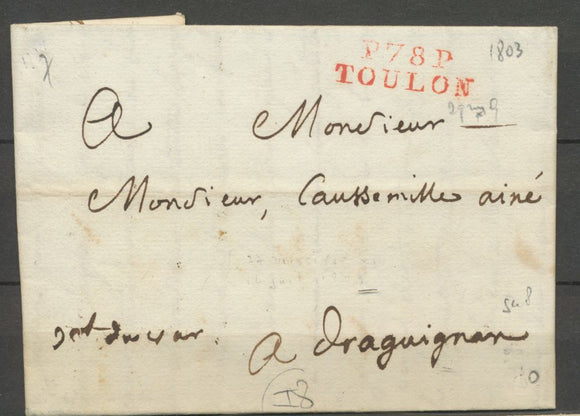 P78P
TOULON
1803
A Monsieur
Monsieur, Caussemille ainé
Dt. du var.
A draguignan
18